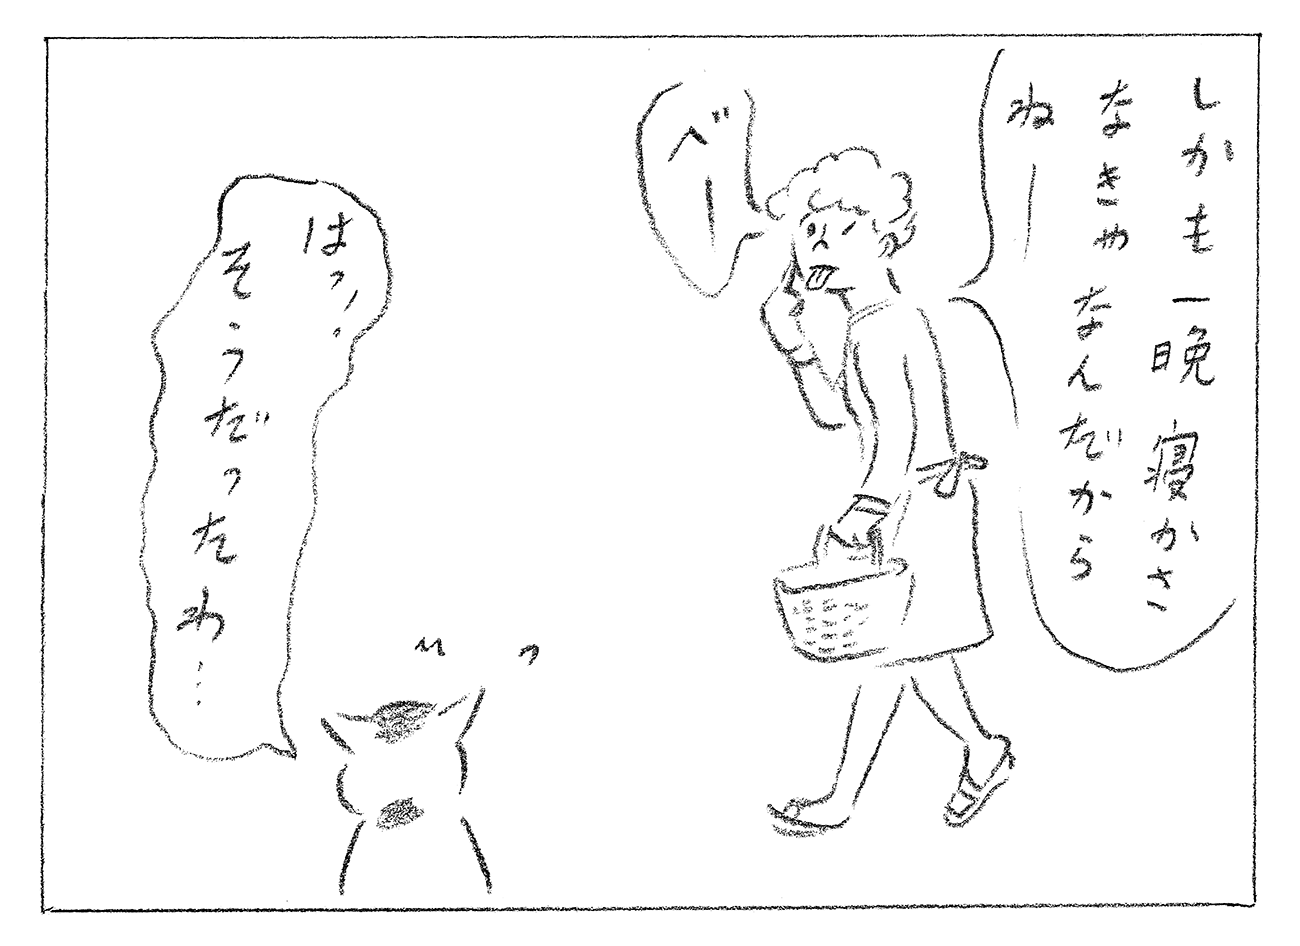 しかも一晩寝かさ
なきゃなんだから
ねー
べー
はっ、
そうだったわ…